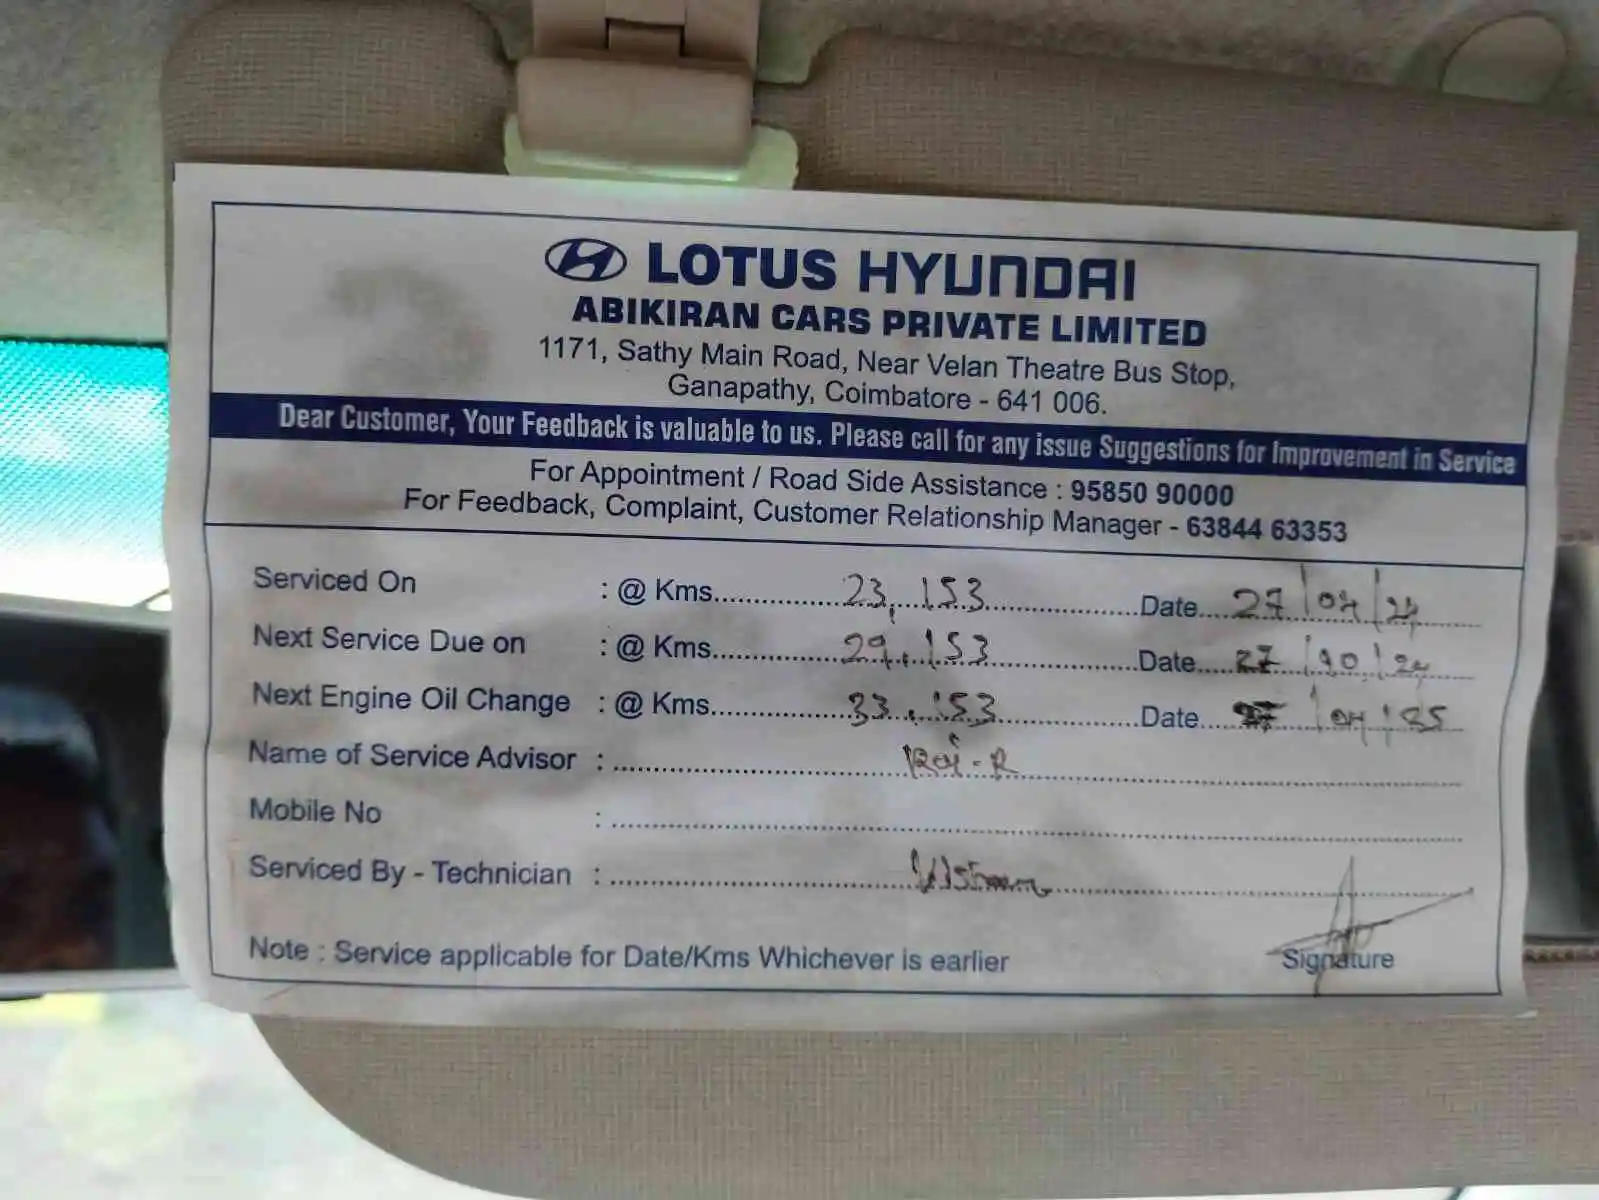 LOTUS HYUNDAI
ABIKIRAN CARS PRIVATE LIMITED
1171, Sathy Main Road, Near Velan Theatre Bus Stop,
Ganapathy, Coimbatore - 641 006.
Dear Customer, Your Feedback is valuable to us. Please call for any issue Suggestions for Improvement in Service
For Appointment / Road Side Assistance : 95850 90000
For Feedback, Complaint, Customer Relationship Manager - 63844 63353
Serviced On : @ Kms 23,153 Date 27/04/24
Next Service Due on : @ Kms 29,153 Date 27/10/24
Next Engine Oil Change : @ Kms 33,153 Date 27/04/25
Name of Service Advisor :
Mobile No :
Serviced By - Technician :
Note : Service applicable for Date/Kms Whichever is earlier
Signature